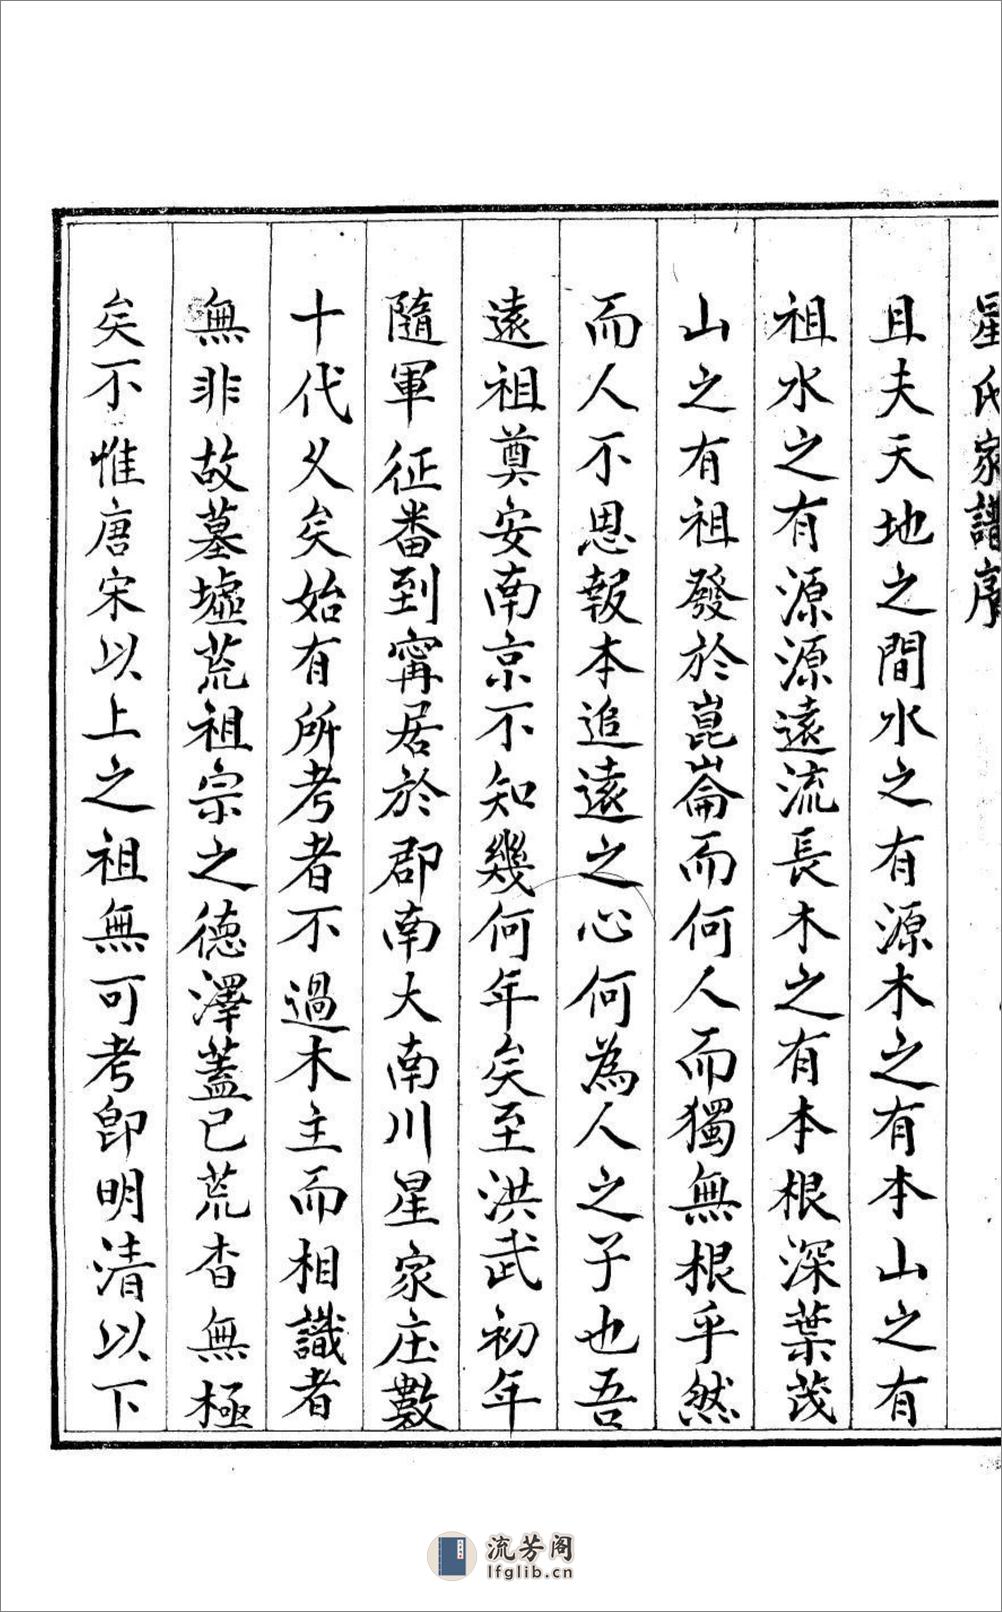 星氏家譜序
且夫天地之間水之有源木之有本山之有
祖水之有源源遠流長木之有本根深葉茂
山之有祖發於崑崙而何人而獨無根乎然
而人不思報本追遠之心何為人之子也吾
遠祖奠安南京不知幾何年矣至洪武初年
隨軍征番到寗居於郡南大南川星家庄數
十代乆矣始有所考者不過木主而相識者
無非故墓墟荒祖宗之德澤蓋已荒杳無極
矣不惟唐宋以上之祖無可考卽明清以下
流芳阁
lfglib.cn